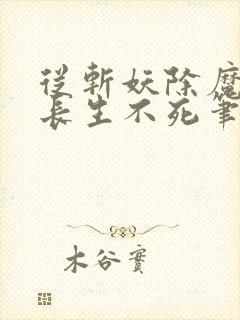 從斬妖除魔
長生不死筆
木谷實